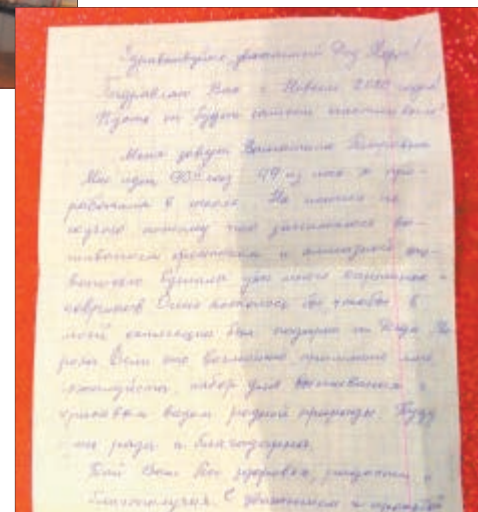 Здравствуйте, уважаемый Дед Мороз!
Поздравляю Вас с Новым 2020 годом!
Пусть он будет самым счастливым!
Меня зовут Валентина Петровна
Мне идёт 90й год 49 из них я про-
работала в школе. На пенсии не
скучаю потому что занимаюсь вы-
шиванием крестиком и алмазной
вышила уже много картинок -
Очень хотелось бы, чтобы в
моей коллекции был подарок от Деда Мо
роза Если это возможно пришлите мне
пожалуйста, набор для вышивания с
красивым видом родной природы. Буду
рада и благодарна.
Дай Вам Бог здоровья, радости и
благополучия. С уважением и